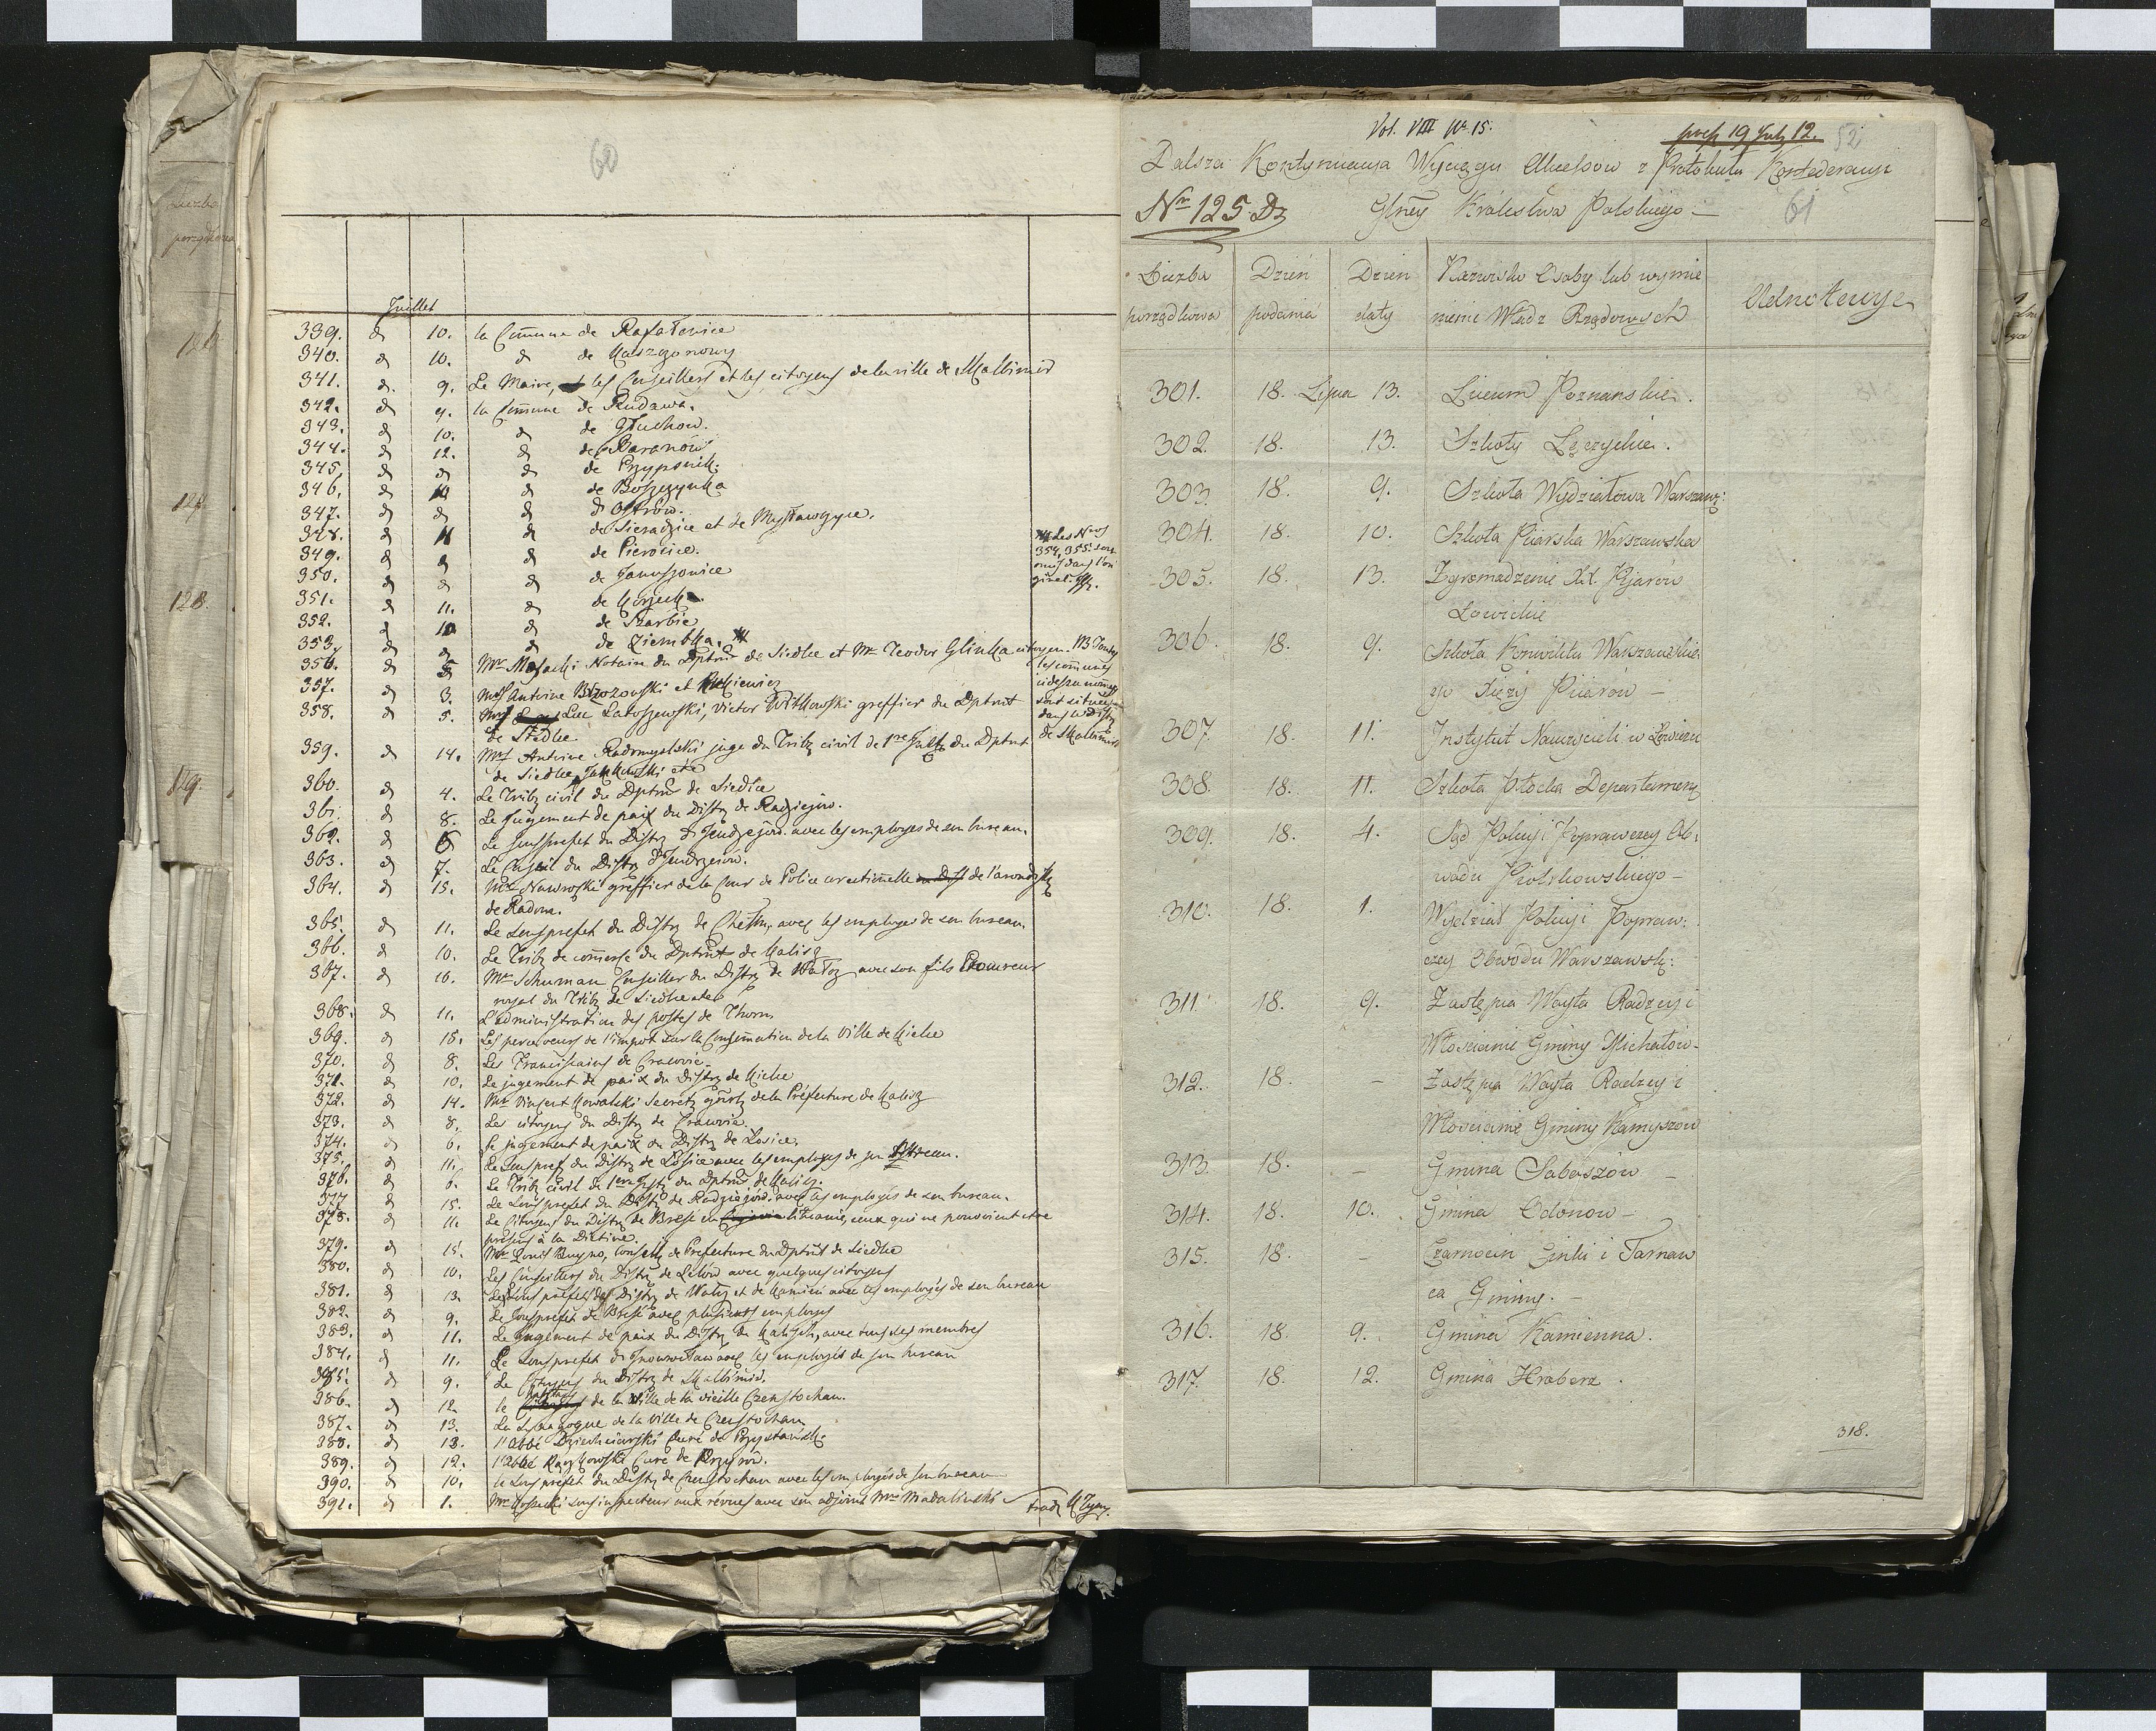 60
Juillet
339. d 10. la Com̄une de Rafałowice
340. d 10. d de Kaszczonowy
341. d. 9. Le Maire, et les Conseillers et les citoyens de la ville de Kalbimir
342. d 9. la Com̄une de Rudawa.
343. d 10. d de Głuchow.
344. d 12. d de Baranów
345. d d d de
346. d d de Boszczynka
347. d d d d'Ostrów.
348. d 11 d de Sieradzice et de Mysławczyce.
349. d d d de Pierocice.
350. d d d de Januszowice
351. d 11. d de
352. d 10 d de Skarbie
353. d d d de Ziembla.
Les Nros
354, 355. sont
omis dans l'ori
ginal
356. d 5 Mr Notaire du Dptmt de Siedlce et Mr Teodor Glinka citoyen
357. d 3. Mrs Antoine Brzozowski et
358. d 5. Mrs Luc Latoszewski, Victor Witkowski greffier du Dptmt
de Siedlce
NB Toutes
les communes
ci dessus nommées
sont situées
dans le Distr
de Skalbimir
359. d 14. Mrs Antoine juge du Trib. civil de 1re du Dptmt
de Siedlce, Jankowski etc
360. d 4. Le Trib civil du Dptmt de Siedlce
361. d 8. Le Jugement de paix du Distr de Radziejow.
362. d 6 Le Sousprefet du Distr d'Jendrzejów avec les employés de son bureau.
363. d 7. Le Conseil du Distr d'Jendrzejów.
364. d 15. Mr Nawroski greffier de la Cour de Police correctionelle de l'arondis
de Radom.
365. d 11. Le Sousprefet du Distr de Chełm, avec les employés de son bureau.
366. d 10. Le Trib de com̄erse du Dptmt de Kalisz
367. d 10. Mr Schuman Conseiller du Distr de avec son fils Procureur
royal du Trib de Siedlce
368. d 11. L'administration des postes de Thorn
369. d 15. Les perceveurs de l'impot sur la Consommation de la Ville de Kielce
370. d 8. Les Franciscains de Cracovie
371. d 10. Le jugement de paix du Distr de Kielce
372. d 14. Mr Vincent Kowalski Secret génerl de la Préfecture de Kalisz
373. d 8. Les citoyens du Distr de Cracovie.
374. d 6. Le jugement de paix du Distr de Łosice.
375. d 11. Le Souspref du Distr de Łosice avec les employés de son bureau.
376. d 6. Le Trib civil de 1ere du Dptmt de Kalisz.
377. d 15. Le Sousprefet du Distr de Radziejow avec les employés de son bureau.
378. d 11. Le Citoyens du Distr de Bresc en Lithuanie, ceux qui ne pouvoient etre
présens à la Dietine.
379. d 15. Mr Louis Buyno, Conseil de Prefecture du Dptmt de Siedlce
380. d 10. Les Conseillers du Distr de Lelów avec quelques citoyens
381. d 13. Les Sous prefets des Distr de et de avec les employés de son bureau
382. d 9. Le Sousprefet de Bresc avec plusieurs employés
383. d 11. Le Jugement de paix du Distr de Kalisch, avec tous ses membres
384. d 11. Le Sousprefet d'Inowrocław avec les employés de son bureau
385. d 9. Le Citoyens du Distr de Skalbimir.
386. d 12. le de la Ville de la vieille Czenstochau.
387. d 13. La Synagogue de la Ville de Czenstochau
388. d 13. l'abbé Curé de
389. d 12. l'abbé Curé de
390. d 10. le Sousprefet du Distr de Czenstochau avec les employés de son bureau
391. d 1. Mr sous inspecteur aux révues avec son adjoint Mr Madalinski
Vol. VIII Nr. 15.
19 July 12.
52
Dalsza Kontynuacya Wyciągu Akcessow z Protokułu Konfederacyi
Nr 125 Dz Glney Królestwa Polskiego —
61
Liczba porządkowa
Dzień podania
Dzień daty
Nazwisko Osoby lub wymie nienie Władz Rządowych
Adnotacye
301. 18. Lipca 13. Liceum Poznanskie.
302. 18. 13. Szkoły Łęczyckie.
303. 18. 9. Szkoła Wydziałowa Warszaws:
304. 18. 10. Szkoła Piiarska Warszawska
305. 18. 13. Zgromadzenie XX Pijarów
Łowickie
306. 18. 9. Szkoła Konwiktu Warszawskie
go Xięży Piiarow —
307. 18. 11. Instytut Nauczycieli w Łowiczu
308. 18. 11. Szkoła Płocka Departamen:
309. 18. 4. Sąd Policyi Poprawczey Ob:
wodu Piotrkowskiego —
310. 18. 1. Wydział Policyi Popraw:
czey Obwodu Warszawsk:
311. 18. 9. Zastępca Woyta Radzcy i
Włoscianie Gminy Michałow.
312. 18. — Zastępca Woyta Radzcy i
Włoscianie Gminy Kamyszow
313. 18. — Gmina Saboszów —
314. 18. 10. Gmina Odonow —
315. 18. — Czarnocin i Tarnaw
ca Gminy. —
316. 18. 9. Gmina Kamienna.
317. 18. 12. Gmina
318.